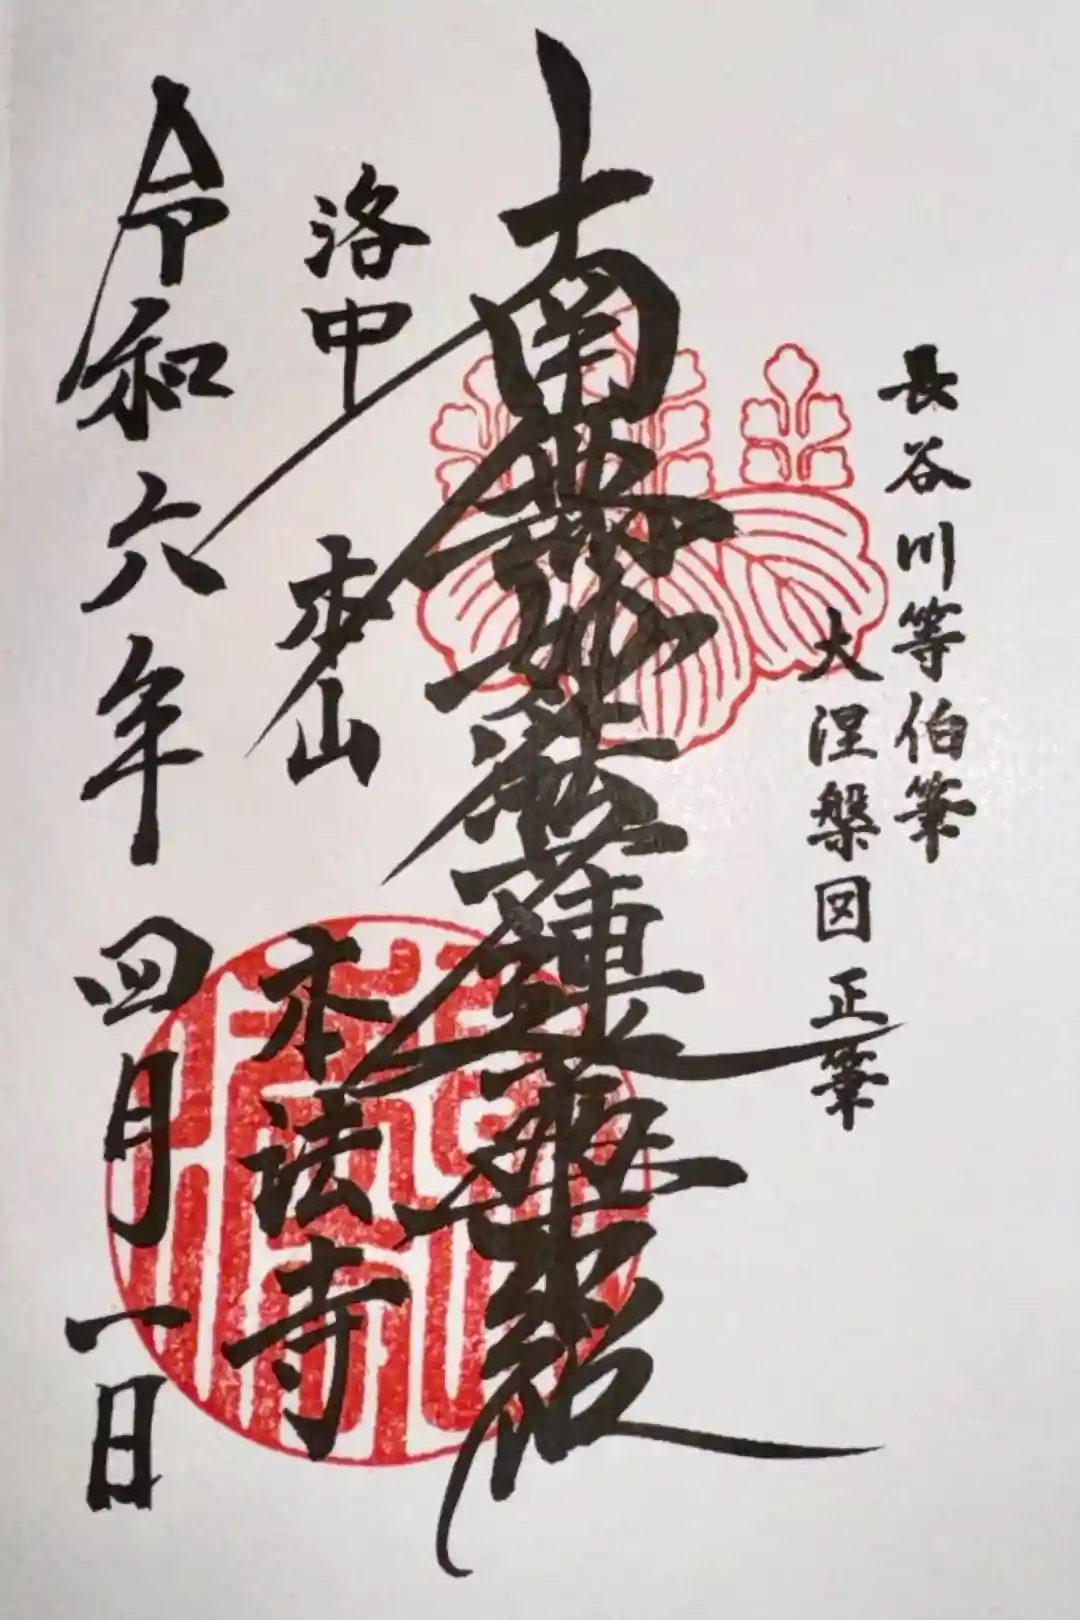 長谷川等伯筆
大涅槃図 正筆
南無妙法蓮華経
洛中 本山 本法寺
令和六年 四月一日